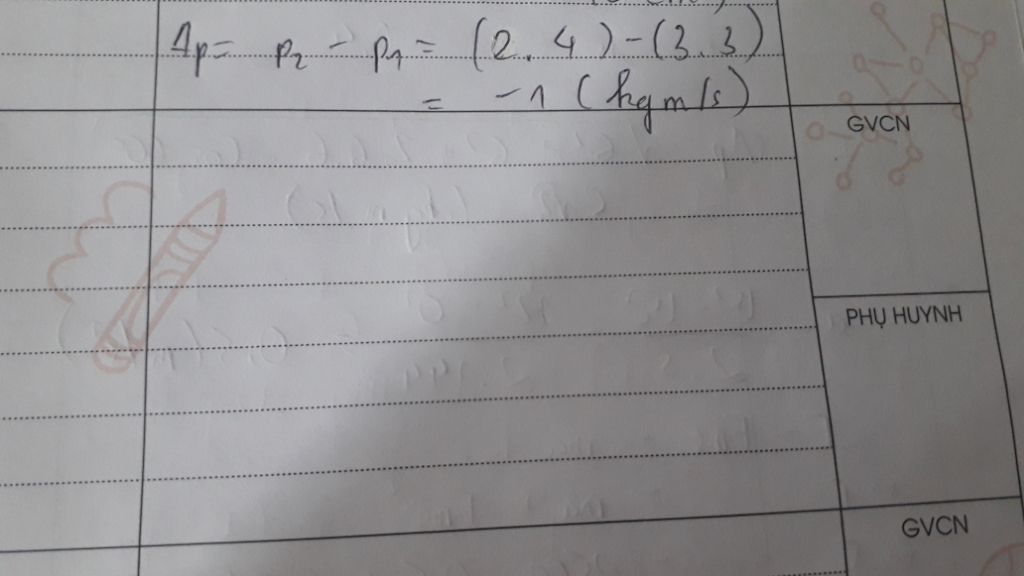 Δp = p₂ - p₁ = (2.4) - (3.3)
= -1 (kgm/s)
GVCN
PHỤ HUYNH
GVCN